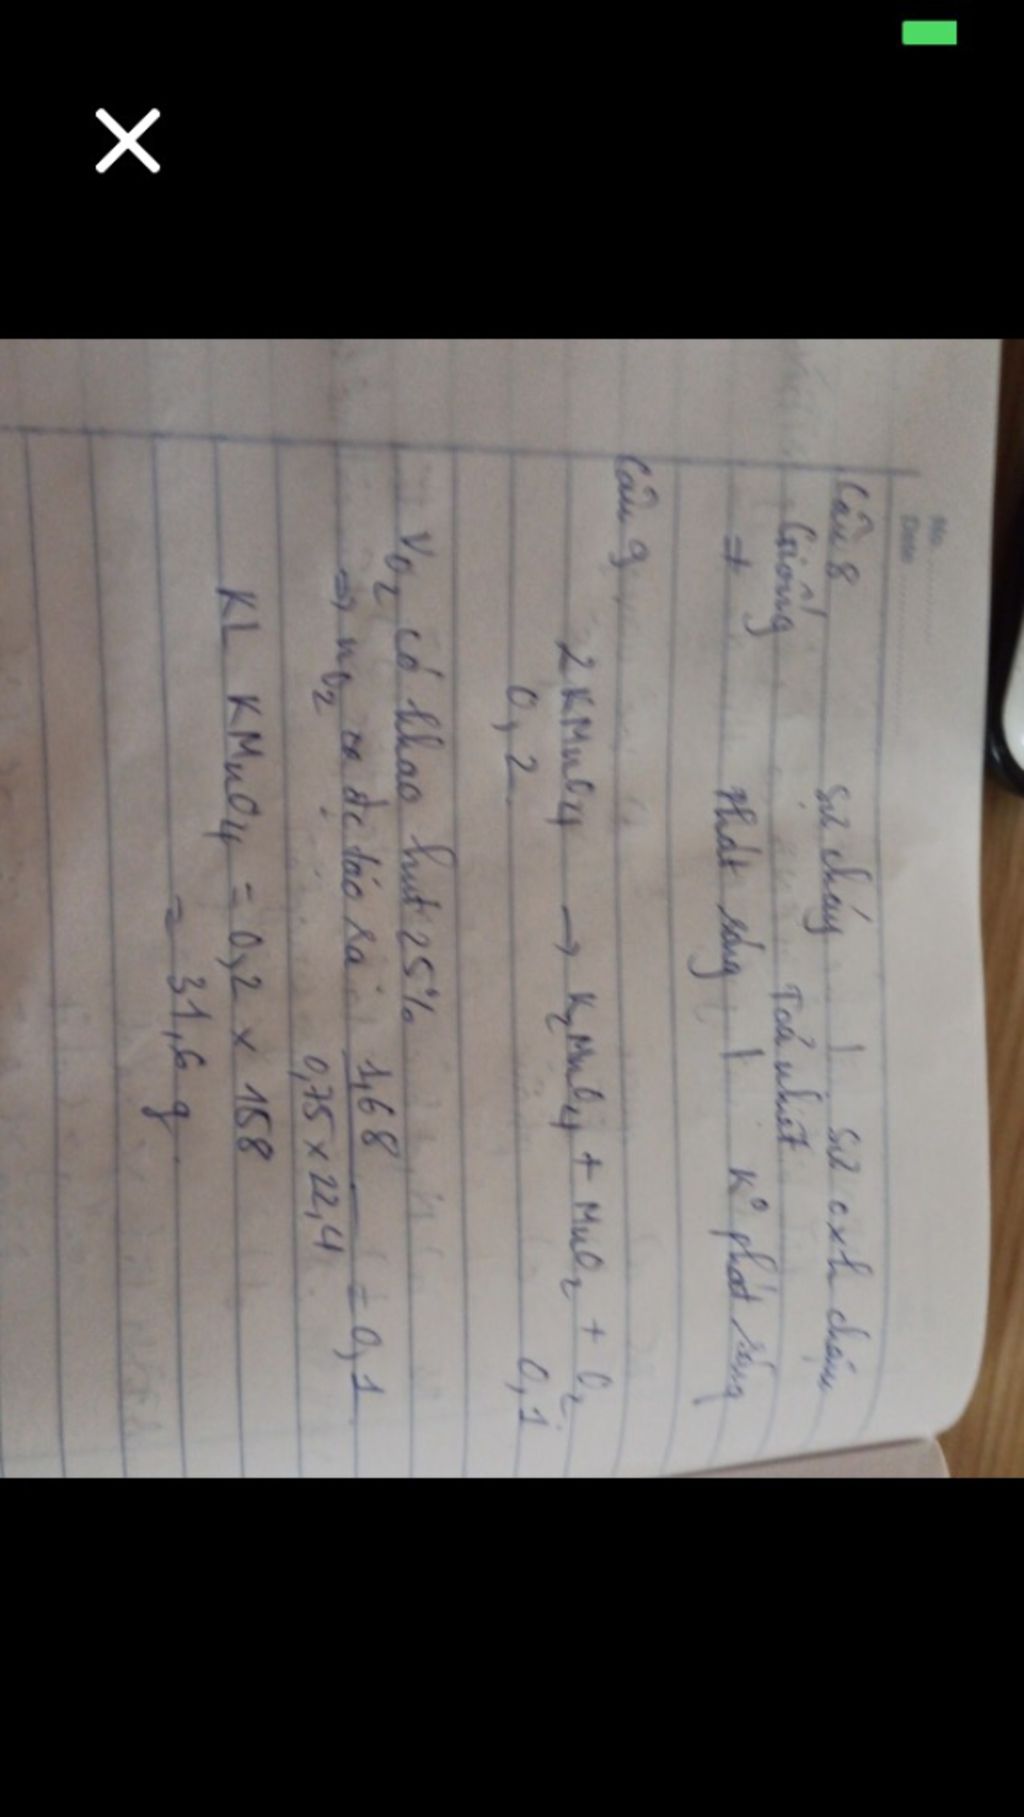 No.
Date
Câu 8 Sự cháy | Sự oxh chậm
Giống Toả nhiệt
≠ Phát sáng | K° phát sáng
Câu 9
2KMnO4 → K2MnO4 + MnO2 + O2
0,2 0,1
VO2 có hao hụt 25%
=> nO2 đc tạo ra 1,68 / 0,75 x 22,4 = 0,1
KL KMnO4 = 0,2 x 158
= 31,6 g